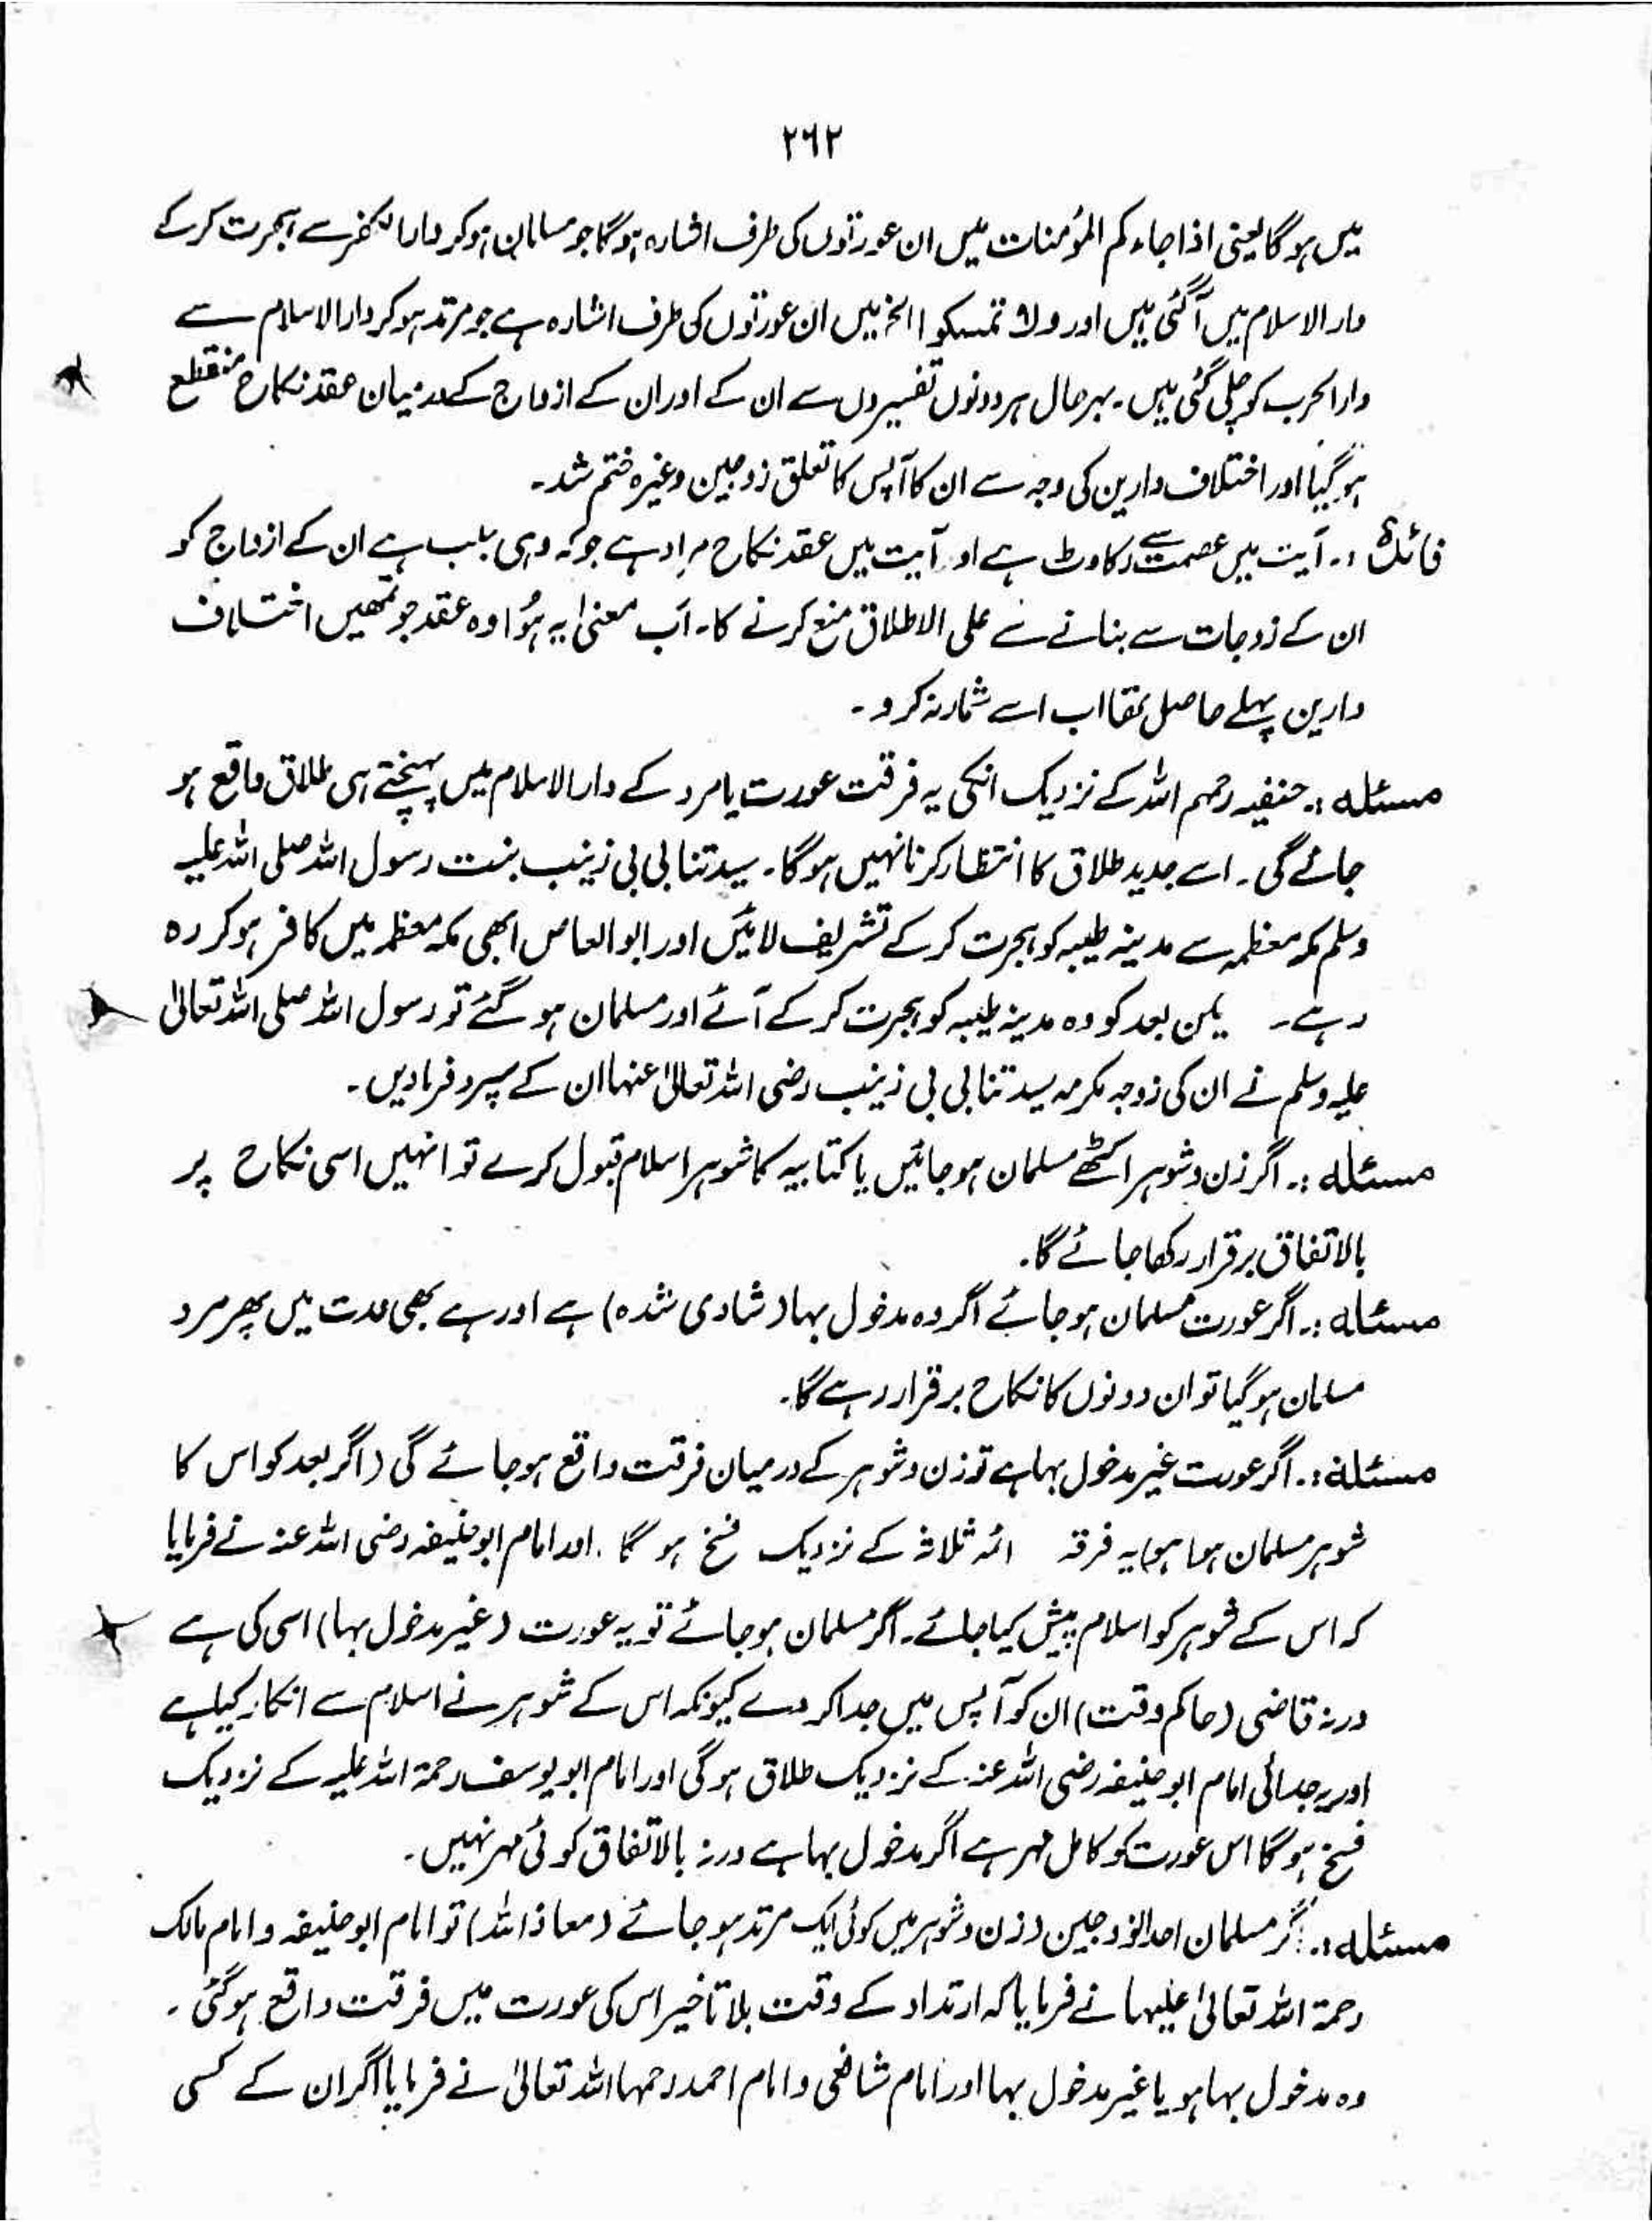 ۲۶۲
میں ہو گا یعنی اذا جاءکم المؤمنات میں ان عورتوں کی طرف اشارہ ہوگا جو مسلمان ہو کر دارالکفر سے ہجرت کر کے
دار الاسلام میں آگئی ہیں اور ولا تمسکوا الخ میں ان عورتوں کی طرف اشارہ ہے جو مرتد ہو کر دارالاسلام سے
دارالحرب کو چلی گئی ہیں۔ بہر حال ہر دونوں تفسیروں سے ان کے اور ان کے ازواج کے درمیان عقد نکاح منقطع
ہو گیا اور اختلاف دارین کی وجہ سے ان کا آپس کا تعلق زوجین وغیرہ ختم شد۔
فائدہ :۔ آیت میں عصمت سے رکاوٹ ہے اور آیت میں عقد نکاح مراد ہے جو کہ وہی سبب ہے ان کے ازواج کو
ان کے زوجات سے بنانے سے علی الاطلاق منع کرنے کا۔ اب معنیٰ یہ ہُوا وہ عقد جو تمھیں اختلاف
دارین پہلے حاصل تھا اب اسے شمار نہ کرو۔
مسئلہ :۔ حنفیہ رحمہم اللہ کے نزدیک انکی یہ فرقت عورت یا مرد کے دار الاسلام میں پہنچتے ہی طلاق واقع ہو
جائے گی۔ اسے جدید طلاق کا انتظار کرنا نہیں ہوگا۔ سیدتنا بی بی زینب بنت رسول اللہ صلی اللہ علیہ
وسلم مکہ معظمہ سے مدینہ طیبہ کو ہجرت کر کے تشریف لائیں اور ابو العاص ابھی مکہ معظمہ میں کافر ہو کر رہ
رہے۔ لیکن بعد کو وہ مدینہ طیبہ کو ہجرت کر کے آئے اور مسلمان ہو گئے تو رسول اللہ صلی اللہ تعالیٰ
علیہ وسلم نے ان کی زوجہ مکرمہ سیدتنا بی بی زینب رضی اللہ تعالیٰ عنہا ان کے سپرد فرما دیں۔
مسئلہ :۔ اگر زن و شوہر اکٹھے مسلمان ہو جائیں یا کتابیہ کا شوہر اسلام قبول کرے تو انہیں اسی نکاح پر
بالاتفاق برقرار رکھا جائے گا۔
مسئلہ :۔ اگر عورت مسلمان ہو جائے اگر وہ مدخول بہا (شادی شدہ) ہے اور ہے بھی عدت میں پھر مرد
مسلمان ہو گیا تو ان دونوں کا نکاح برقرار رہے گا۔
مسئلہ :۔ اگر عورت غیر مدخول بہا ہے تو زن و شوہر کے درمیان فرقت واقع ہو جائے گی (اگر بعد کو اس کا
شوہر مسلمان ہوا ہو) یہ فرقہ ائمہ ثلاثہ کے نزدیک فسخ ہو گا۔ اور امام ابو حنیفہ رضی اللہ عنہ نے فرمایا
کہ اس کے شوہر کو اسلام پیش کیا جائے۔ اگر مسلمان ہو جائے تو یہ عورت (غیر مدخول بہا) اسی کی ہے
ورنہ قاضی (حاکم وقت) ان کو آپس میں جدا کر دے کیونکہ اس کے شوہر نے اسلام سے انکار کیا ہے
اور یہ جدائی امام ابو حنیفہ رضی اللہ عنہ کے نزدیک طلاق ہو گی اور امام ابو یوسف رحمۃ اللہ علیہ کے نزدیک
فسخ ہو گا اس عورت کو کامل مہر ہے اگر مدخول بہا ہے ورنہ بالاتفاق کوئی مہر نہیں۔
مسئلہ :۔ اگر مسلمان احد الزوجین (زن و شوہر میں کوئی ایک مرتد ہو جائے (معاذ اللہ) تو امام ابو حنیفہ و امام مالک
رحمۃ اللہ تعالیٰ علیہما نے فرمایا کہ ارتداد کے وقت بلا تاخیر اس کی عورت میں فرقت واقع ہو گئی۔
وہ مدخول بہا ہو یا غیر مدخول بہا اور امام شافعی و امام احمد رحمہما اللہ تعالیٰ نے فرمایا اگر ان کے کسی